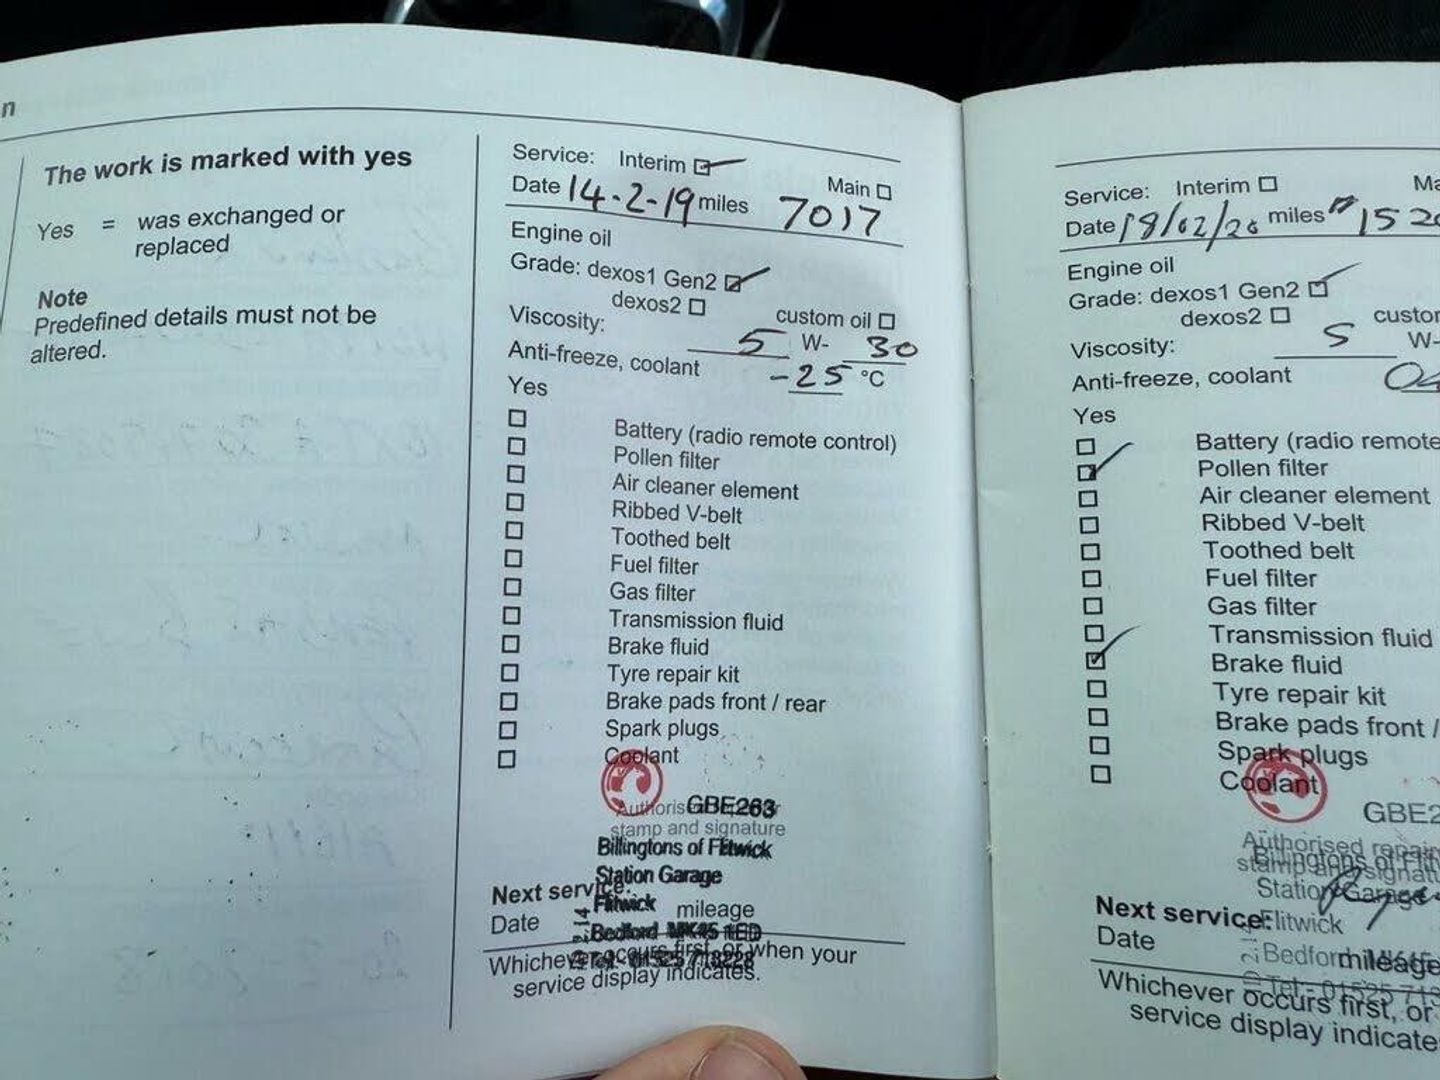 n
The work is marked with yes
Yes = was exchanged or
replaced
Note
Predefined details must not be
altered.
Service: Interim
Main
Date 14-2-19 miles 7017
Engine oil
Grade: dexos1 Gen2
dexos2
custom oil
Viscosity: 5 W- 30
Anti-freeze, coolant -25 °C
Yes
Battery (radio remote control)
Pollen filter
Air cleaner element
Ribbed V-belt
Toothed belt
Fuel filter
Gas filter
Transmission fluid
Brake fluid
Tyre repair kit
Brake pads front / rear
Spark plugs
Coolant
GBE263
Authorised
stamp and signature
Billingtons of Flitwick
Station Garage
Next service:
Flitwick
Date mileage
Bedford MK45 1ED
Whichever occurs first, or when your
Tel - 01525 713228
service display indicates.
Service: Interim
Ma
Date 18/02/20 miles 1520
Engine oil
Grade: dexos1 Gen2
dexos2
custor
Viscosity: 5 W-
Anti-freeze, coolant
Yes
Battery (radio remote
Pollen filter
Air cleaner element
Ribbed V-belt
Toothed belt
Fuel filter
Gas filter
Transmission fluid
Brake fluid
Tyre repair kit
Brake pads front /
Spark plugs
Coolant
GBE2
Authorised repair
Billingtons of Flit
stamp and signatu
Station Garage
Next service:
Flitwick
Date
Bedford
mileage
Tel - 01525 713
Whichever occurs first, or
service display indicate